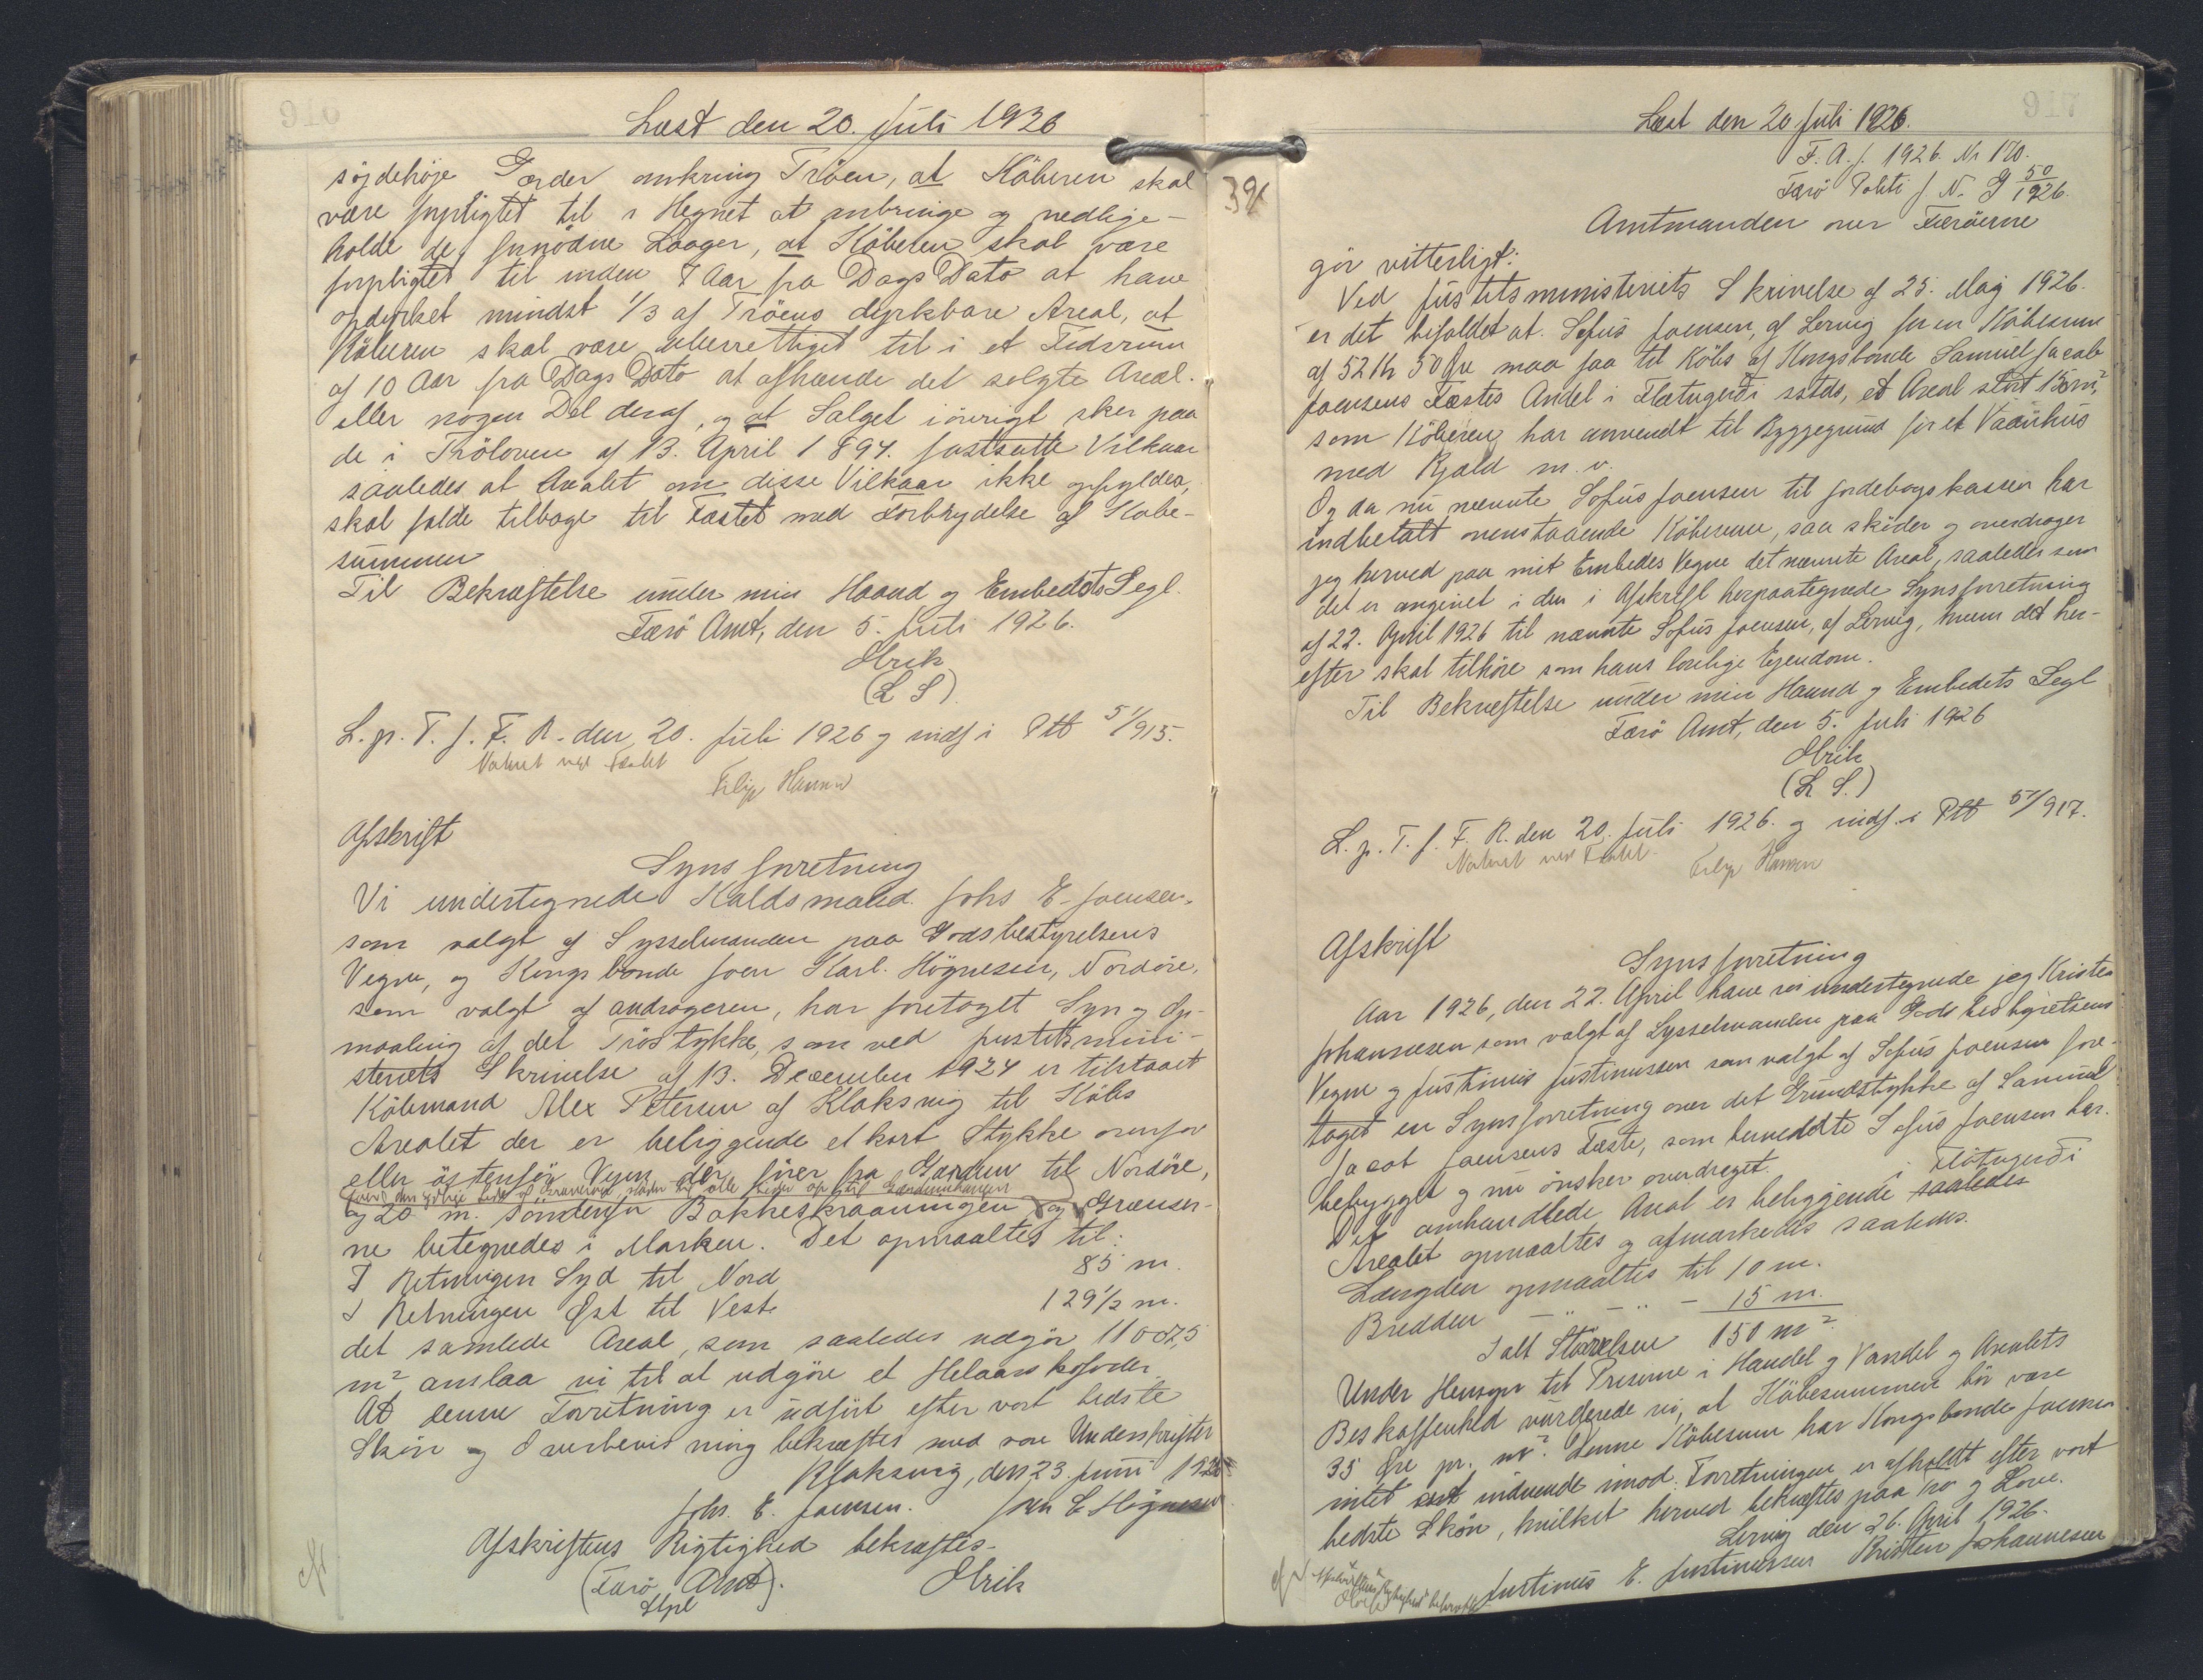 916
Læst den 20. Juli 1926
søjdehøje Gærder omkring Trøen, at Køberen skal
være forpligtet til i Hegnet at anbringe og vedlige-
holde de fornødne Laager, at Køberen skal være
forpligtet til inden 7 Aar fra Dags Dato at have
opdyrket mindst 1/3 af Trøens dyrkbare Areal, at
Køberen skal være uberettiget til i et Tidsrum
af 10 Aar fra Dags Dato at afhænde det solgte Areal
eller nogen Del deraf, og at Salget iøvrigt sker paa
de i Trøloven af 13. April 1894. fastsatte Vilkaar
saaledes at Arealet om disse Vilkaar ikke opfyldes,
skal falde tilbage til Fæstet med Fortrydelse af Købe-
summen
Til Bekræftelse under min Haand og Embedets Segl.
Færø Amt, den 5. Juli 1926.
Hrik
(L S).
L. p. T. f. F. R. den 20. Juli 1926 og indf i Ptb 51/915.
Noteret ved Fæstet
Filip Hansen
Afskrift
Synsforretning
Vi undertegnede Kaldsmand Johs E. Joensen,
som valgt af Sysselmanden paa Godsbestyrelsens
Vegne, og Kongsbonde Joen Karl. Høgnesen, Nordøre,
som valgt af andrageren, har foretaget Syn og Op-
maaling af det Trøstykke, som ved Justitsmini-
steriets Skrivelse af 13. December 1924 er tilstaaet
Købmand Alex Petersen af Klaksvig til Købs
Arealet der er beliggende et kort Stykke ovenfor
eller østenfor Vejen der fører fra Gærden til Nordøre,
og 20 m. søndenfor Bakkeskraaningen og Grænser-
ne betegnedes i Marken. Det opmaaltes til:
I Retningen Syd til Nord 85 m.
I Retningen Øst til Vest 129 1/2 m.
det samlede Areal, som saaledes udgør 11007,5
m² anslaa vi til at udgøre et Helaars kofoder
At denne Forretning er udført efter vort bedste
Skøn og Overbevisning bekræftes med vore Underskrifter
Klaksvig, den 23. Juni 1925
Johs. E. Joensen. Joen C Høgnesen
Afskriftens Rigtighed bekræftes
(Færø Amt). Hrik
917
Læst den 20 Juli 1926.
F. A. J. 1926. Nr 170.
398
Færø Politi J N. G 50/1926.
Amtmanden over Færøerne
gør vitterligt:
Ved Justitsministeriets Skrivelse af 25. Maj 1926.
er det befaldet at Sofus Joensen, af Lervig for en Købesum
af 52 Kr 50 Øre maa faa til Købs af Kongsbonde Samuel Jacob
Joensens Fæstes Andel i Fløtugerði sstds, et Areal stort 150 m²,
som Køberen har anvendt til Byggegrund for et Vaanhus
med Kjald m. v.
Og da nu nævnte Sofus Joensen til Jordebogskassen har
indbetalt ovenstaaende Købesum, saa skøder og overdrager
jeg herved paa mit Embedes Vegne det nævnte Areal, saaledes som
det er angivet i den i Afskrift herpaategnede Synsforretning
af 22. April 1926 til nævnte Sofus Joensen, af Lervig, hvem det her-
efter skal tilhøre som hans lovlige Ejendom.
Til Bekræftelse under min Haand og Embedets Segl
Færø Amt, den 5. Juli 1926
Hrik
(L S.)
L. p. T. f. F. R. den 20. Juli 1926. og indf. i Ptb 51/917.
Noteret ved Fæstet.
Filip Hansen
Afskrift
Synsforretning
Aar 1926, den 22. April have vi undertegnede jeg Kristen
Johannesen som valgt af Sysselmanden paa Godsbestyrelsens
Vegne og Justinus Justinussen som valgt af Sofus Joensen fore-
taget en Synsforretning over det Grundstykke af Samuel
Jacob Joensens Fæste, som bemeldte Sofus Joensen har
bebygget og nu ønsker overdraget.
Det omhandlede Areal er beliggende i Fløtugerði saaledes
Arealet opmaaltes og afmærkedes saaledes.
Længden opmaaltes til 10 m.
Bredden — " — " — 15 m.
Ialt Størrelsen 150 m².
Under Hensyn til Priserne i Handel og Vandel og Arealets
Beskaffenhed vurderede vi, at Købesummen bør være
35 Øre pr. m². Denne Købesum har Kongsbonde Joensen
intet at indvende imod. Forretningen er afholdt efter vort
bedste Skøn, hvilket herved bekræftes paa Tro og Love.
Lervig den 26. April 1926.
Justinus E. Justinussen Kristen Johannesen
Afskriftens Rigtighed bekræftes
Hrik